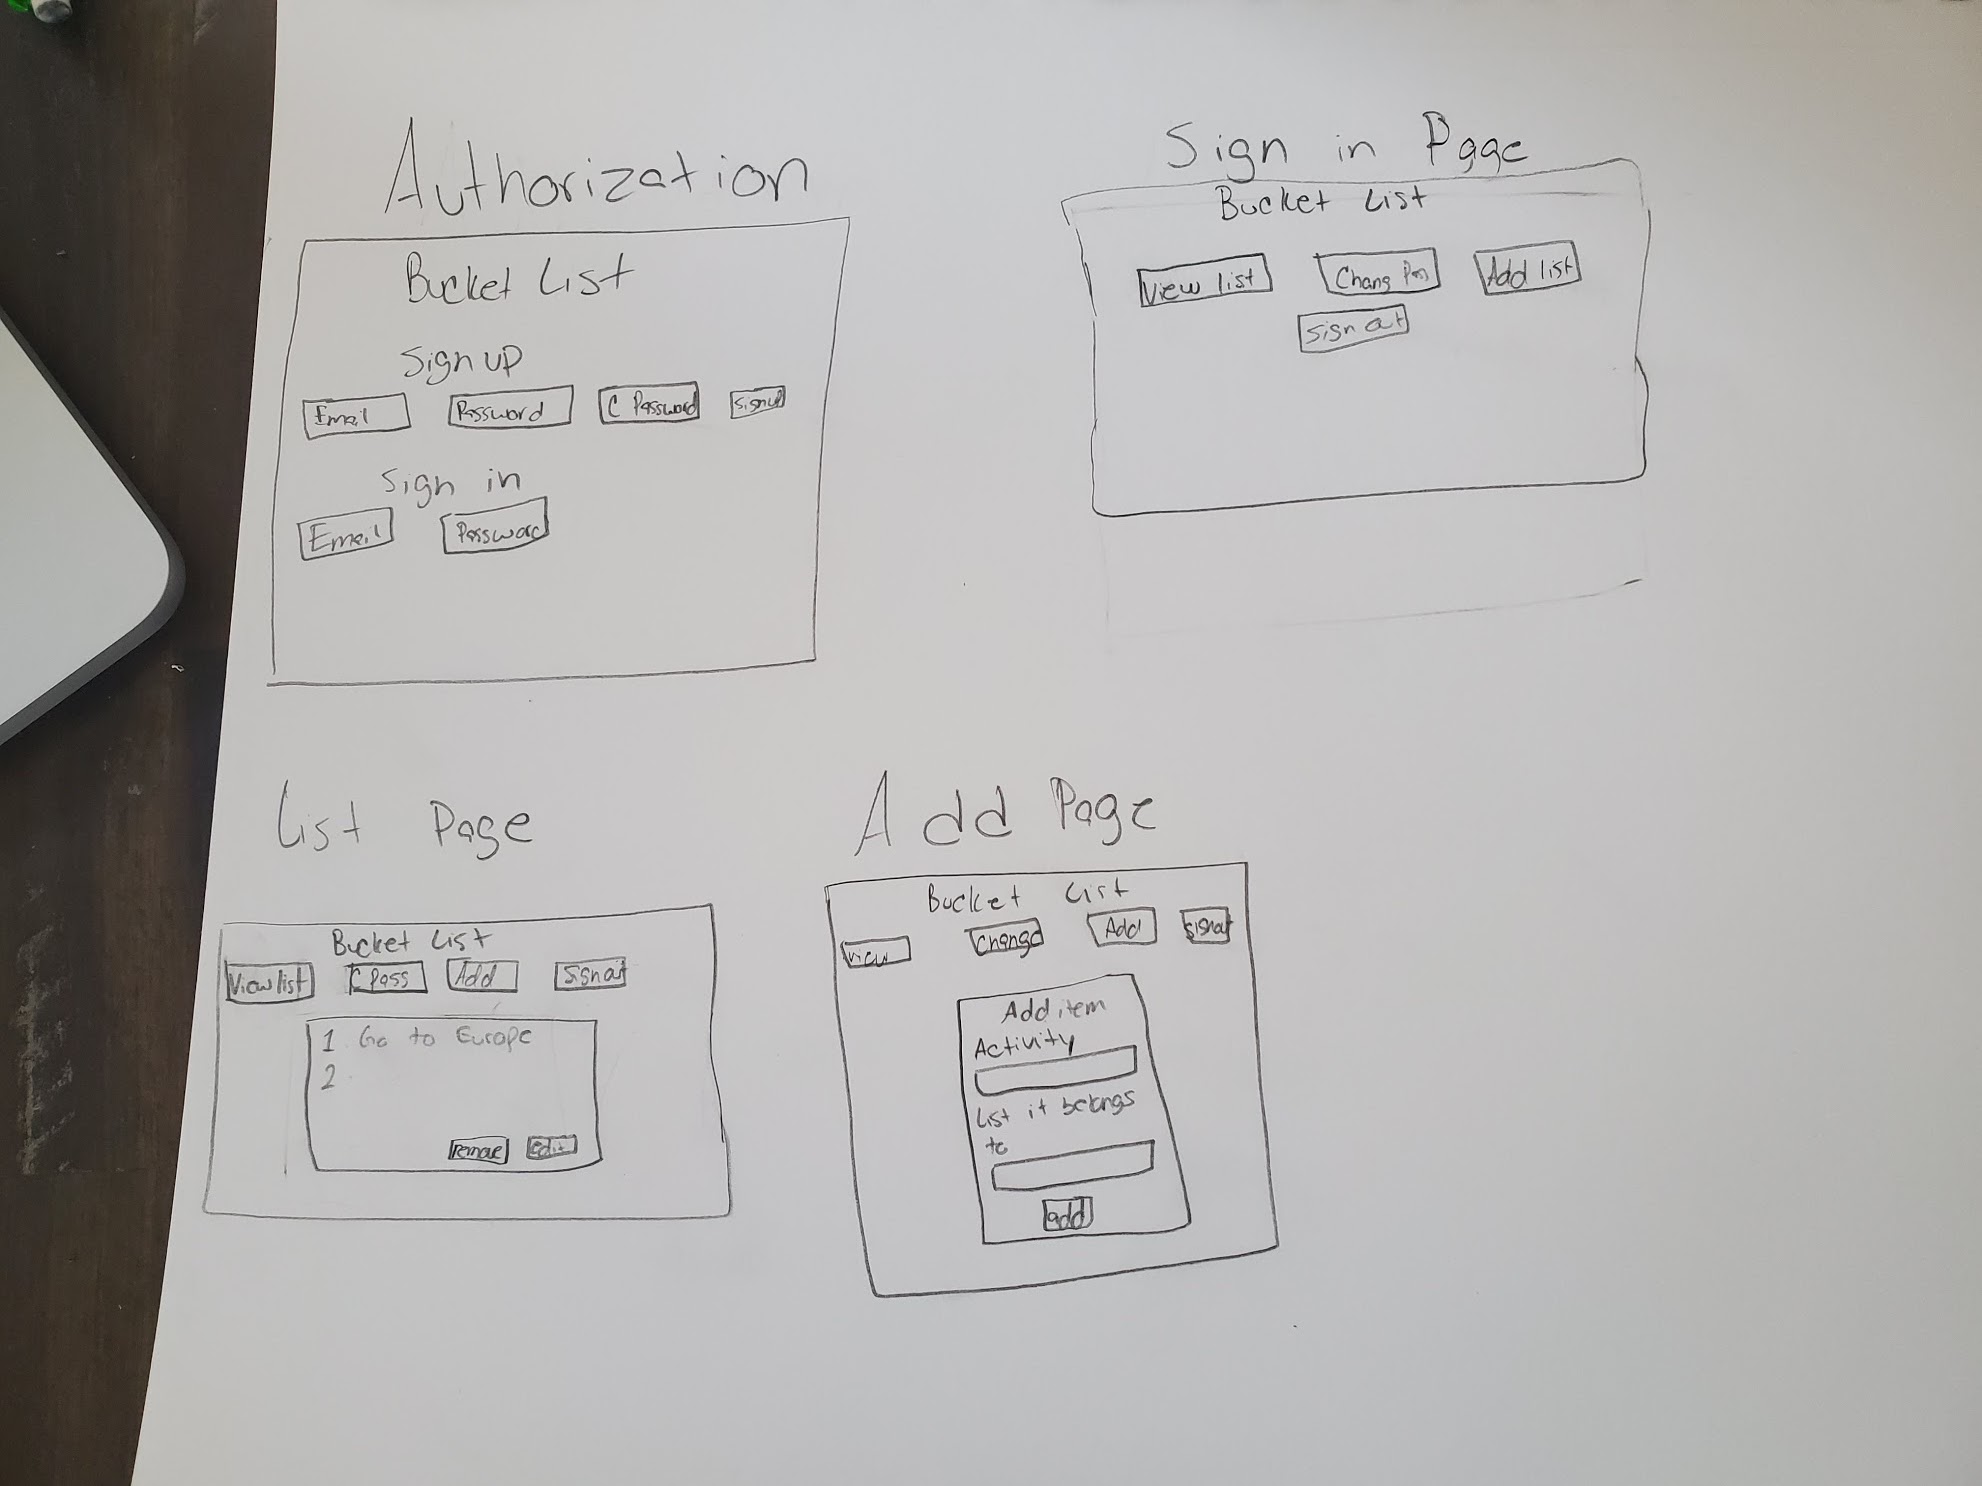 Authorization
Bucket List
Sign up
Email Password C Password Signup
Sign in
Email Password
Sign in Page
Bucket List
View list Chang Pas Add list
Sign out
List Page
Bucket List
View list C Pass Add Sign out
1 Go to Europe
2
remove Edit
Add Page
Bucket List
View Change Add Signout
Add item
Activity
List it belongs
to
add